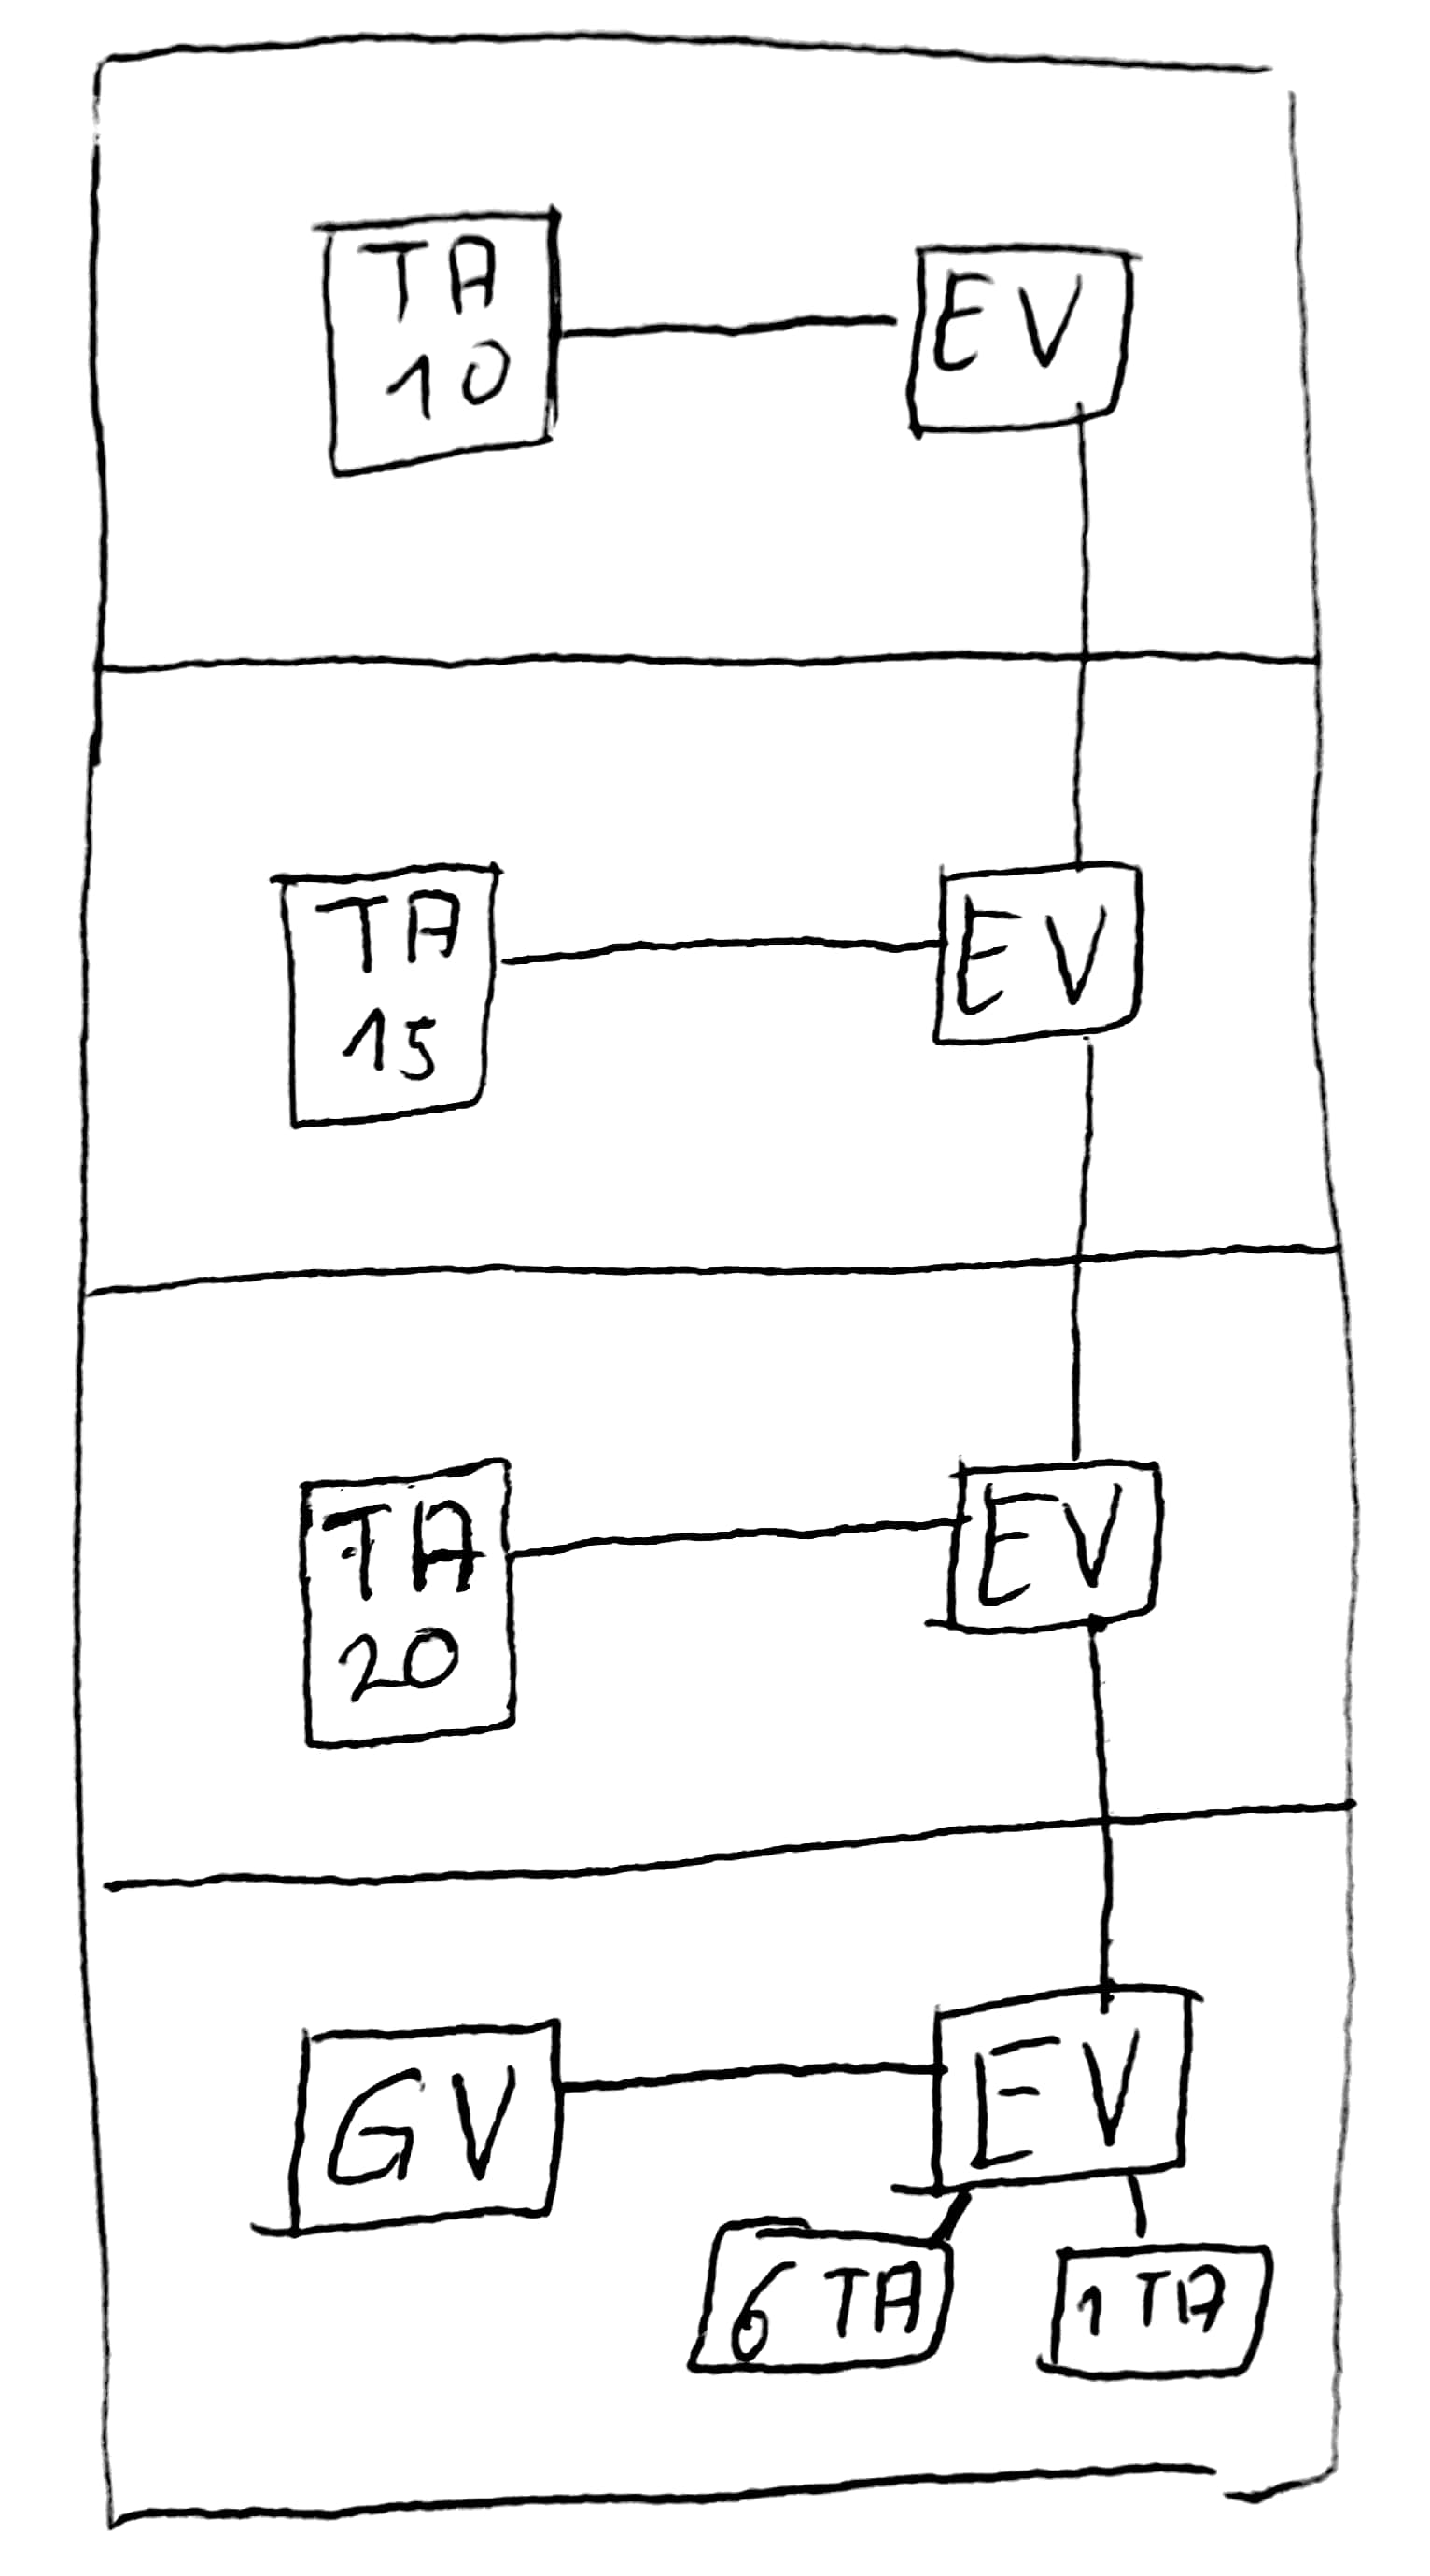 TA
10
EV
TA
15
EV
TA
20
EV
GV
EV
6 TA
1 TA